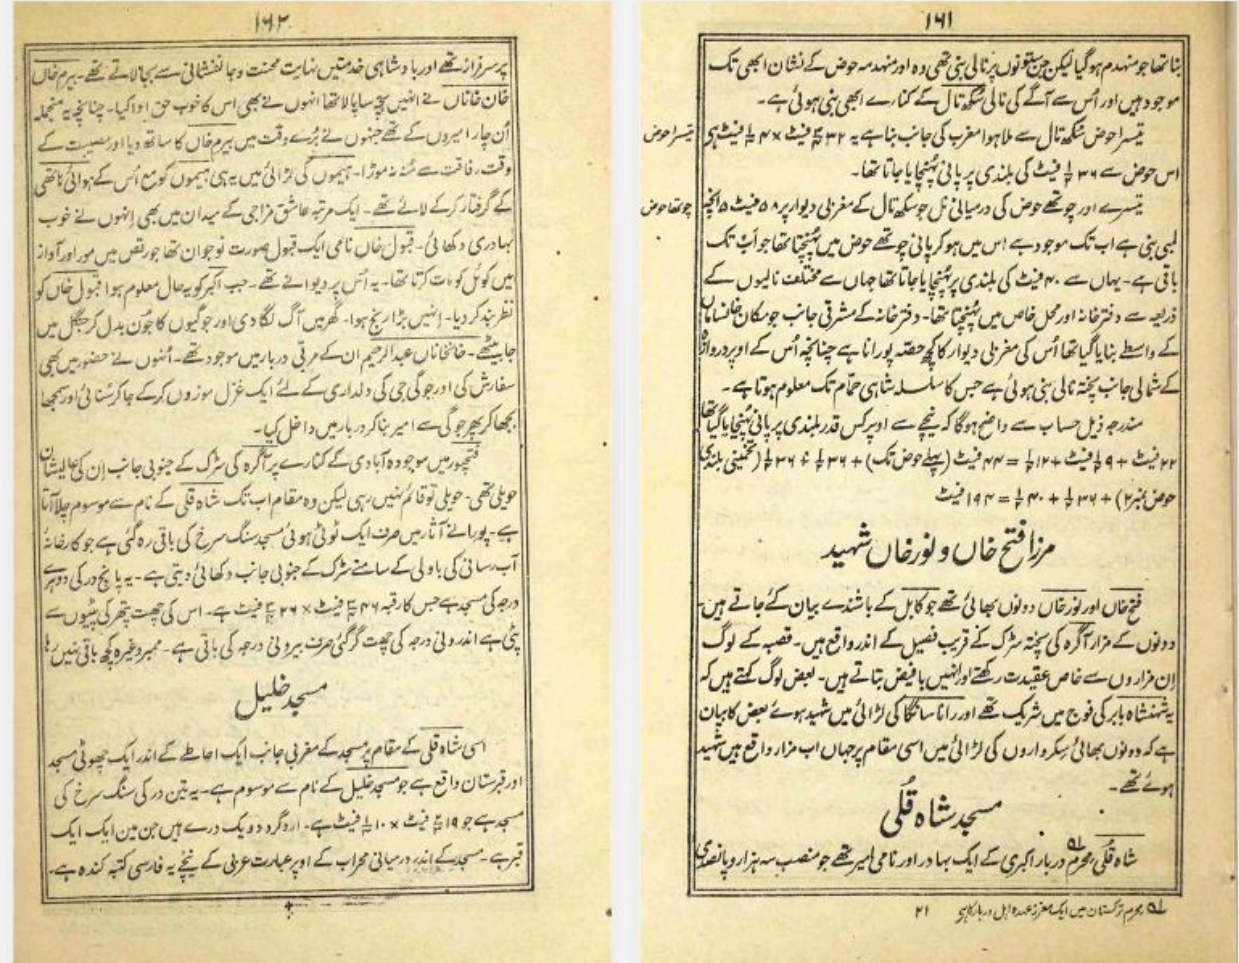 ۱۶۱
بنا تھا جو منہدم ہوگیا لیکن جن ستونوں پر نالی بنی تھی وہ اور منہدمہ حوض کے نشان ابھی تک
موجود ہیں اور اُس سے آگے کی نالی سُکھ تال کے کنارے ابھی بنی ہوئی ہے۔
تیسرا حوض سُکھ تال سے ملا ہوا مغرب کی جانب بنا ہے یہ فیٹ × فیٹ ہے
تیسرا حوض
اس حوض سے ۳۶ ½ فیٹ کی بلندی پر پانی پُہنچایا جاتا تھا۔
تیسرے اور چوتھے حوض کی درمیانی نل جو سکھ تال کے مغربی دیوار پر ۵۸ فیٹ ۵ انچہ
چوتھا حوض
لمبی بنی ہے اب تک موجود ہے اس میں ہوکر پانی چوتھے حوض میں پُہنچتا تھا جو اب تک
باقی ہے۔ یہاں سے ۴۰ فیٹ کی بلندی پر پُہنچایا جاتا تھا جہاں سے مختلف نالیوں کے
ذریعہ سے دفتر خانہ اور محل خاص میں پُہنچتا تھا۔ دفتر خانہ کے مشرقی جانب جو مکان خانساماں
کے واسطے بنایا گیا تھا اُس کی مغربی دیوار کا کچھ حصّہ پورانا ہے چنانچہ اُس کے اوپر دروازہ
کے شمالی جانب پختہ نالی بنی ہوئی ہے جس کا سلسلہ شاہی حمّام تک معلوم ہوتا ہے۔
مندرجہ ذیل حساب سے واضح ہوگا کہ نیچے سے اوپر کس قدر بلندی پر پانی پُہنچایا گیا تھا
۲۲ فیٹ + ۹ ½ فیٹ + ۱۲ ½ = ۴۴ فیٹ (پہلے حوض تک) + ۳۶ ½ + ۳۶ ½ (تخمینی بلندی
حوض نمبر ۲) + ۳۶ ½ + ۴۰ ½ = ۱۹۴ فیٹ
مرزا فتح خاں و نور خاں شہید
فتح خاں اور نور خاں دونوں بھائی تھے جو کابل کے باشندے بیان کئے جاتے ہیں
دونوں کے مزار آگرہ کی پختہ سڑک کے قریب فصیل کے اندر واقع ہیں۔ قصبہ کے لوگ
اِن مزاروں سے خاص عقیدت رکھتے اور انہیں بافیض بتاتے ہیں۔ بعض لوگ کہتے ہیں کہ
یہ شہنشاہ بابر کی فوج میں شریک تھے اور رانا سانگا کی لڑائی میں شہید ہوئے بعض کا بیان
ہے کہ دونوں بھائی سکرواروں کی لڑائی میں اسی مقام پر جہاں اب مزار واقع ہیں شہید
ہوئے تھے۔
مسجد شاہ قُلی
شاہ قُلی محرم لہ دربار اکبری کے ایک بہادر اور نامی امیر تھے جو منصب سہ ہزار و پانصدی
لہ محرم ترکستان میں ایک معزز عہدہ اہل دربار کا ہے ۲۱
۱۶۲
پر سرفراز تھے اور بادشاہی خدمتیں نہایت محنت و جانفشانی سے بجا لاتے تھے۔ بیرم خاں
خان خاناں نے انہیں بچّہ سا پالا تھا انہوں نے بھی اس کا خوب حق ادا کیا۔ چنانچہ یہ منجملہ
اُن چار امیروں کے تھے جنہوں نے بُرے وقت میں بیرم خاں کا ساتھ دیا اور مصیبت کے
وقت رفاقت سے مُنہ نہ موڑا۔ ہیموں کی لڑائی میں یہ ہی ہیموں کو مع اُس کے ہوائی ہاتھی
کے گرفتار کر کے لائے تھے۔ ایک مرتبہ عاشق مزاجی کے میدان میں بھی اِنہوں نے خوب
بہادری دکھائی۔ قبول خاں نامی ایک قبول صورت نوجوان تھا جو رقص میں مور اور آواز
میں کوئل کو مات کرتا تھا۔ یہ اُس پر دیوانے تھے۔ جب اکبر کو یہ حال معلوم ہوا قبول خاں کو
نظر بند کر دیا۔ اِنہیں بڑا رنج ہوا۔ گھر میں آگ لگا دی اور جوگیوں کا جُون بدل کر جنگل میں
جا بیٹھے۔ خانخاناں عبدالرحیم ان کے مربّی دربار میں موجود تھے۔ اُنہوں نے حضور میں بھی
سفارش کی اور جوگی جی کی دلداری کے لئے ایک غزل موزوں کر کے جا کر سُنائی اور سمجھا
بجھا کر پھر جوگی سے امیر بنا کر دربار میں داخل کیا۔
فتحپور میں موجودہ آبادی کے کنارے پر آگرہ کی سڑک کے جنوبی جانب اِن کی عالیشان
حویلی تھی۔ حویلی تو قائم نہیں رہی لیکن وہ مقام اب تک شاہ قلی کے نام سے موسوم چلا آتا
ہے۔ پورانے آثار میں صرف ایک ٹوٹی ہوئی مسجد سنگ سرخ کی باقی رہ گئی ہے جو کارخانہ
آب رسانی کی باولی کے سامنے سڑک کے جنوبی جانب دکھائی دیتی ہے۔ یہ پانچ در کی دوہرے
درجہ کی مسجد ہے جس کا رقبہ فیٹ × فیٹ ہے۔ اس کی چھت پتھر کی پٹیوں سے
پٹی ہے اندرونی درجہ کی چھت گر گئی صرف بیرونی درجہ کی باقی ہے۔ ممبر وغیرہ کچھ باقی نہیں رہا
مسجد خلیل
اسی شاہ قلی کے مقام پر مسجد کے مغربی جانب ایک احاطے کے اندر ایک چھوٹی مسجد
اور قبرستان واقع ہے جو مسجد خلیل کے نام سے موسوم ہے۔ یہ تین در کی سنگ سرخ کی
مسجد ہے جو فیٹ × فیٹ ہے۔ ارد گرد دو یک درے ہیں جن میں ایک ایک
قبر ہے۔ مسجد کے اندر درمیانی محراب کے اوپر عبارت عربی کے نیچے یہ فارسی کتبہ کندہ ہے۔